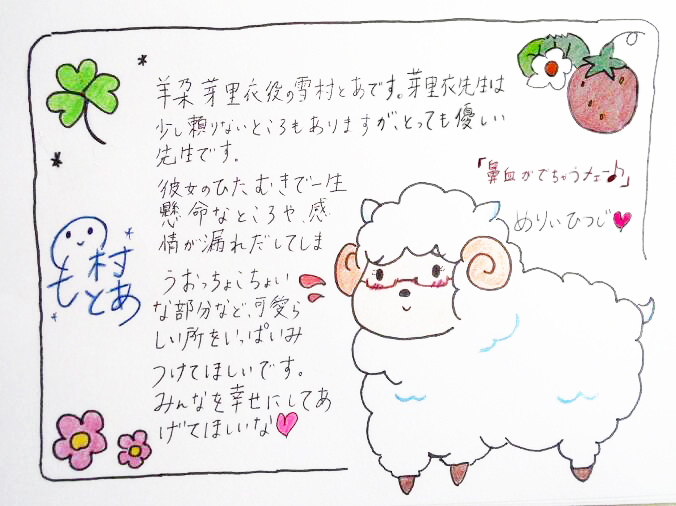 羊朶 芽里衣役の雪村とあです。芽里衣先生は
少し頼りないところもありますが、とっても優しい
先生です。
彼女のひたむきで一生
懸命なところや、感
情が漏れだしてしま
うおっちょこちょい
な部分など、可愛ら
しい所をいっぱいみ
つけてほしいです。
みんなを幸せにしてあ
げてほしいな
「鼻血がでちゃうナエー♪」
めりぃひつじ
村
とあ